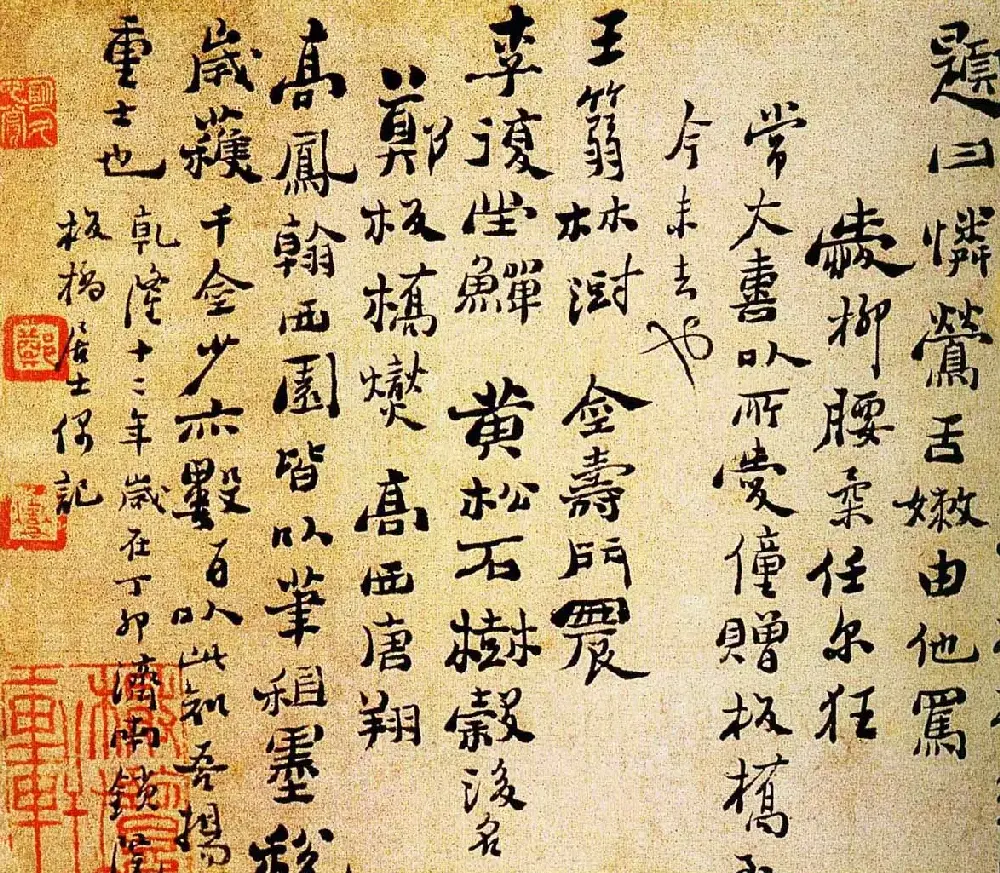 題曰憐鶯舌嫩由他罵
愛柳腰柔任尔狂
常大喜以所愛僮贈板橋
今未去也
王篛林澍 金壽門農
李復堂鱓 黃松石樹榖後名
鄭板橋燮 高西唐翔
高鳳翰西園皆以筆租墨稅
歲獲千金少亦數百以此知吾揚
重士也 乾隆十二年歲在丁卯濟南鎖院
板橋居士偶記
鄭